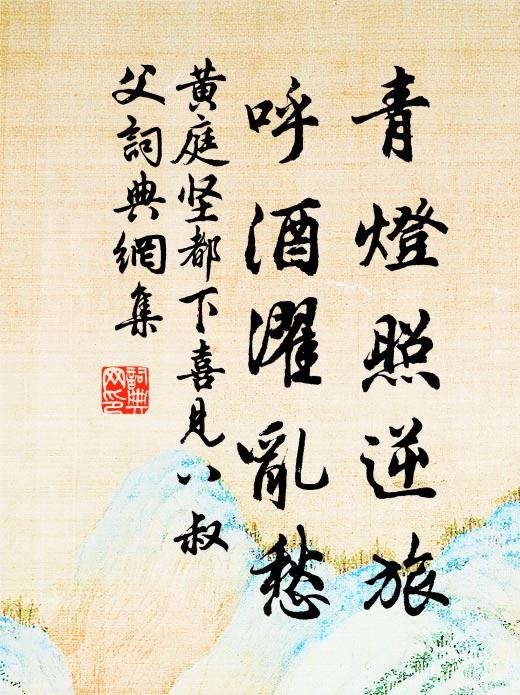 青燈照逆旅
呼酒濯亂愁
黄庭坚都下喜見八叔
父詞典網集
詞典网印